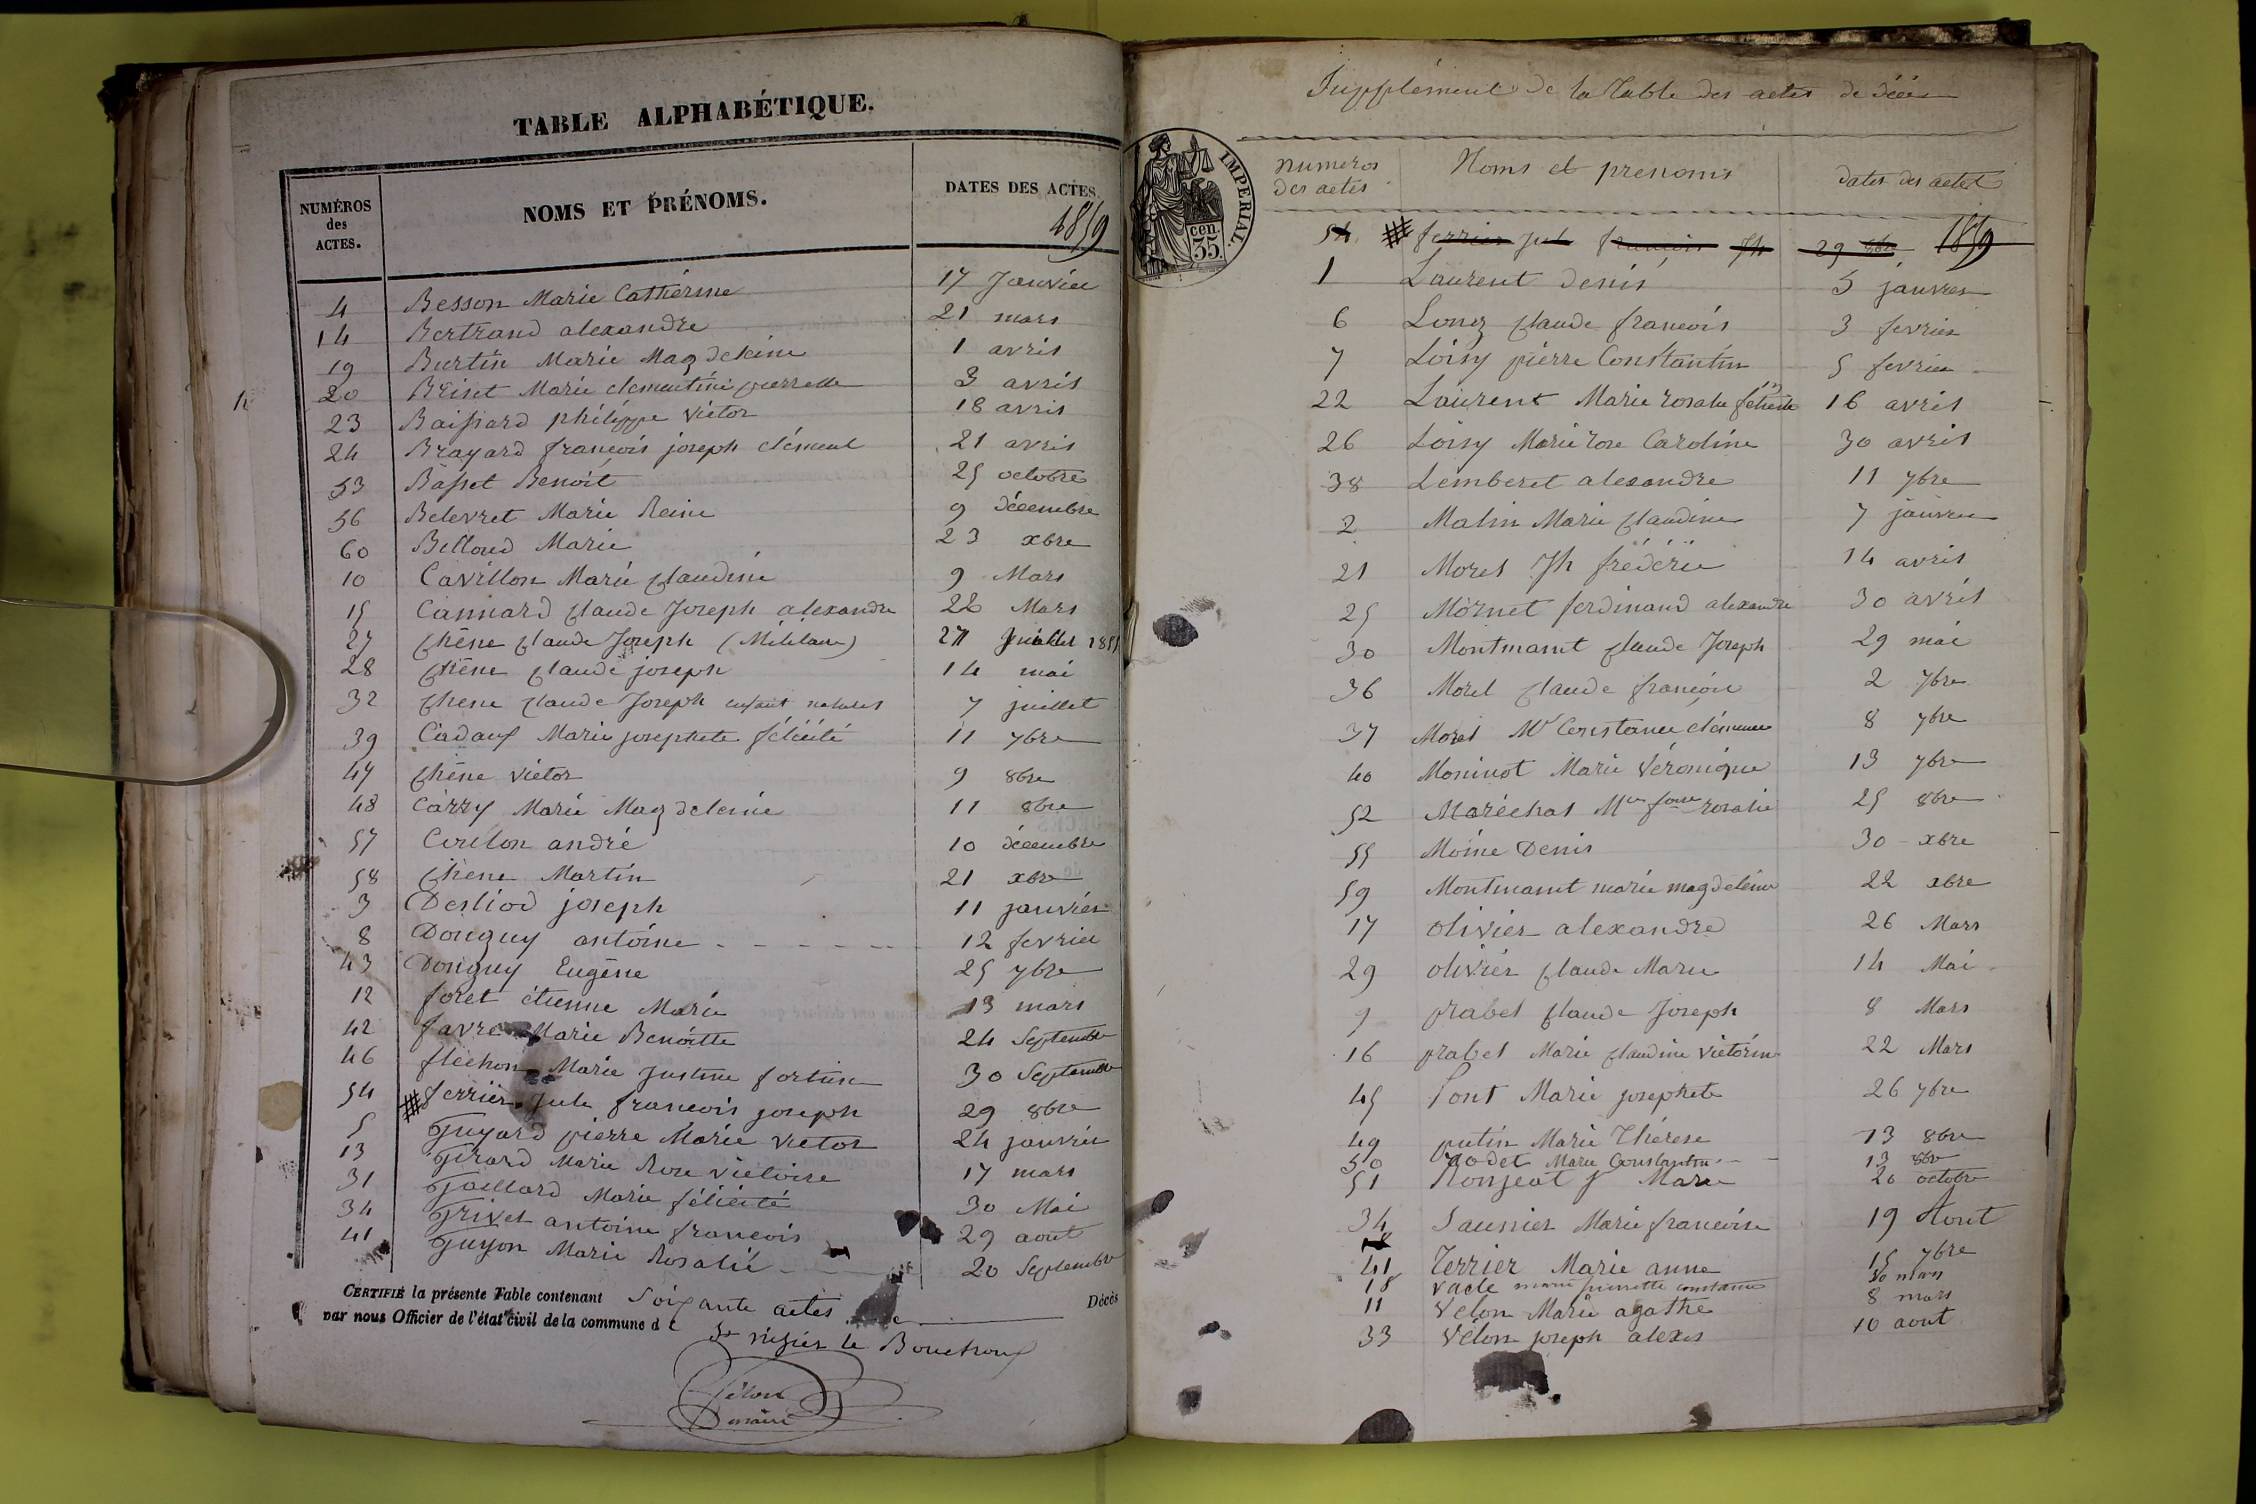 TABLE ALPHABÉTIQUE.
NUMÉROS des ACTES. NOMS ET PRÉNOMS. DATES DES ACTES.
1859
4 Besson Marie Catherine 17 Janvier
14 Bertrand alexandre 21 mars
19 Burtin Marie Magdeleine 1 avril
20 Briset Marie clementine pierrette 3 avril
23 Baissard philippe victor 18 avril
24 Brayard francois joseph clément 21 avril
53 Basset Benoit 25 octobre
56 Belevret Marie Reine 9 décembre
60 Belloud Marie 23 xbre
10 Cavillon Marie Claudine 9 Mars
15 Cannard Claude Joseph alexandre 22 Mars
27 Chêne Claude Joseph (Militaire) 27 Juillet
28 Chêne Claude joseph 14 mai
32 Chene Claude Joseph enfant naturel 7 juillet
39 Cadaux Marie josephete félicité 11 7bre
47 Chêne victor 9 8bre
48 Carry Marie Magdeleine 11 8bre
57 Coulon andré 10 décembre
58 Chene Martin 21 xbre
3 Desliod joseph 11 janvier
8 Donguy antoine 12 fevrier
43 Donguy Eugène 25 7bre
12 foret étienne Marie 13 mars
42 favre Marie Benoitte 24 Septembre
46 flechon Marie justine fortune 30 Septembre
54 # ferrier Jule francois joseph 29 8bre
5 Guyard pierre Marie victor 24 janvier
13 Girard Marie Rose victoire 17 mars
31 Gaillard Marie félicité 30 Mai
34 Grivel antoine francois 29 aout
41 Guyon Marie Rosalie 20 Septembre
CERTIFIÉ la présente Table contenant Soixante actes de Décès
par nous Officier de l'état civil de la commune de St nizier le Bouchoux
Vélon
maire
Supplément de la Table des actes de décès
IMPERIAL.
cen.
35.
numeros des actes Noms et prenoms dates des actes
54 # ferrier jule francois Jh 29 8bre 1859
1 Laurent denis 5 janvier
6 Long Claude francois 3 fevrier
7 Loisy pierre Constantin 5 fevrier
22 Laurent Marie rosalie félicité 16 avril
26 Loisy Marie rose Caroline 30 avril
38 Lemberet alexandre 11 7bre
2 Malin Marie Claudine 7 janvier
21 Morel Jh fréderic 14 avril
25 Mornet ferdinand alexandre 30 avril
30 Montmanit Claude Joseph 29 mai
36 Morel Claude françois 2 7bre
37 Morel Me Constance clémence 8 7bre
40 Moninot Marie Véronique 13 7bre
52 Maréchal Mie fçoise rosalie 25 8bre
55 Moine Denis 30 xbre
59 Montmanit marie magdeleine 22 xbre
17 olivier alexandre 26 Mars
29 olivier Claude Marie 14 Mai
9 prabel Claude Joseph 8 Mars
16 prabel Marie Claudine victorine 22 Mars
45 Pont Marie josephete 26 7bre
49 putin Marie Thérese 13 8bre
50 Marie 13 8bre
51 Ronjeat Marie 20 octobre
34 Saunier Marie francoise 19 Aout
41 Terrier Marie anne 15 7bre
18 vacle marie pierrette constance 30 mars
11 Velon Marie agathe 8 mars
33 Vélon joseph alexis 10 aout